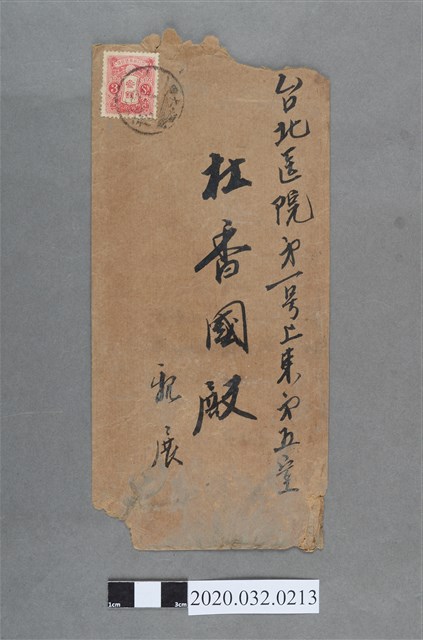 台北医院第一号上東第五室
杜香國殿
親展
3 Sn
1cm 3cm
2020.032.0213